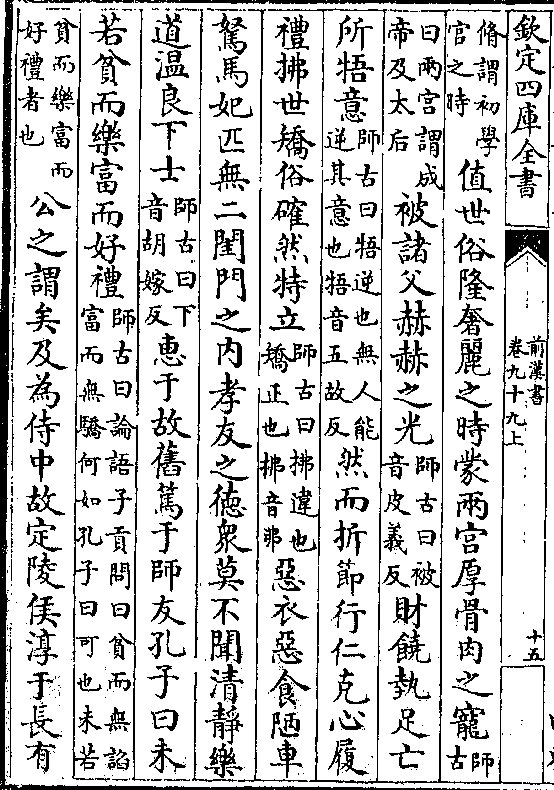 欽定四庫全書
前漢書
卷九十九上
十五
脩謂初學官之時值世俗隆奢麗之時蒙兩宮厚骨肉之寵師古
曰兩宮謂成帝及太后被諸父赫赫之光師古曰被音皮義反財饒埶足亡
所牾意師古曰牾逆也無人能逆其意也牾音五故反然而折節行仁克心履
禮拂世矯俗確然特立師古曰拂違也矯正也拂音弗惡衣惡食陋車
駑馬妃匹無二閨門之内孝友之徳衆莫不聞清靜樂
道温良下士師古曰下音胡嫁反惠于故舊篤于師友孔子曰未
若貧而樂富而好禮師古曰論語子貢問曰貧而無諂富而無驕何如孔子曰可也未若
貧而樂富而好禮者也公之謂矣及為侍中故定陵侯淳于長有